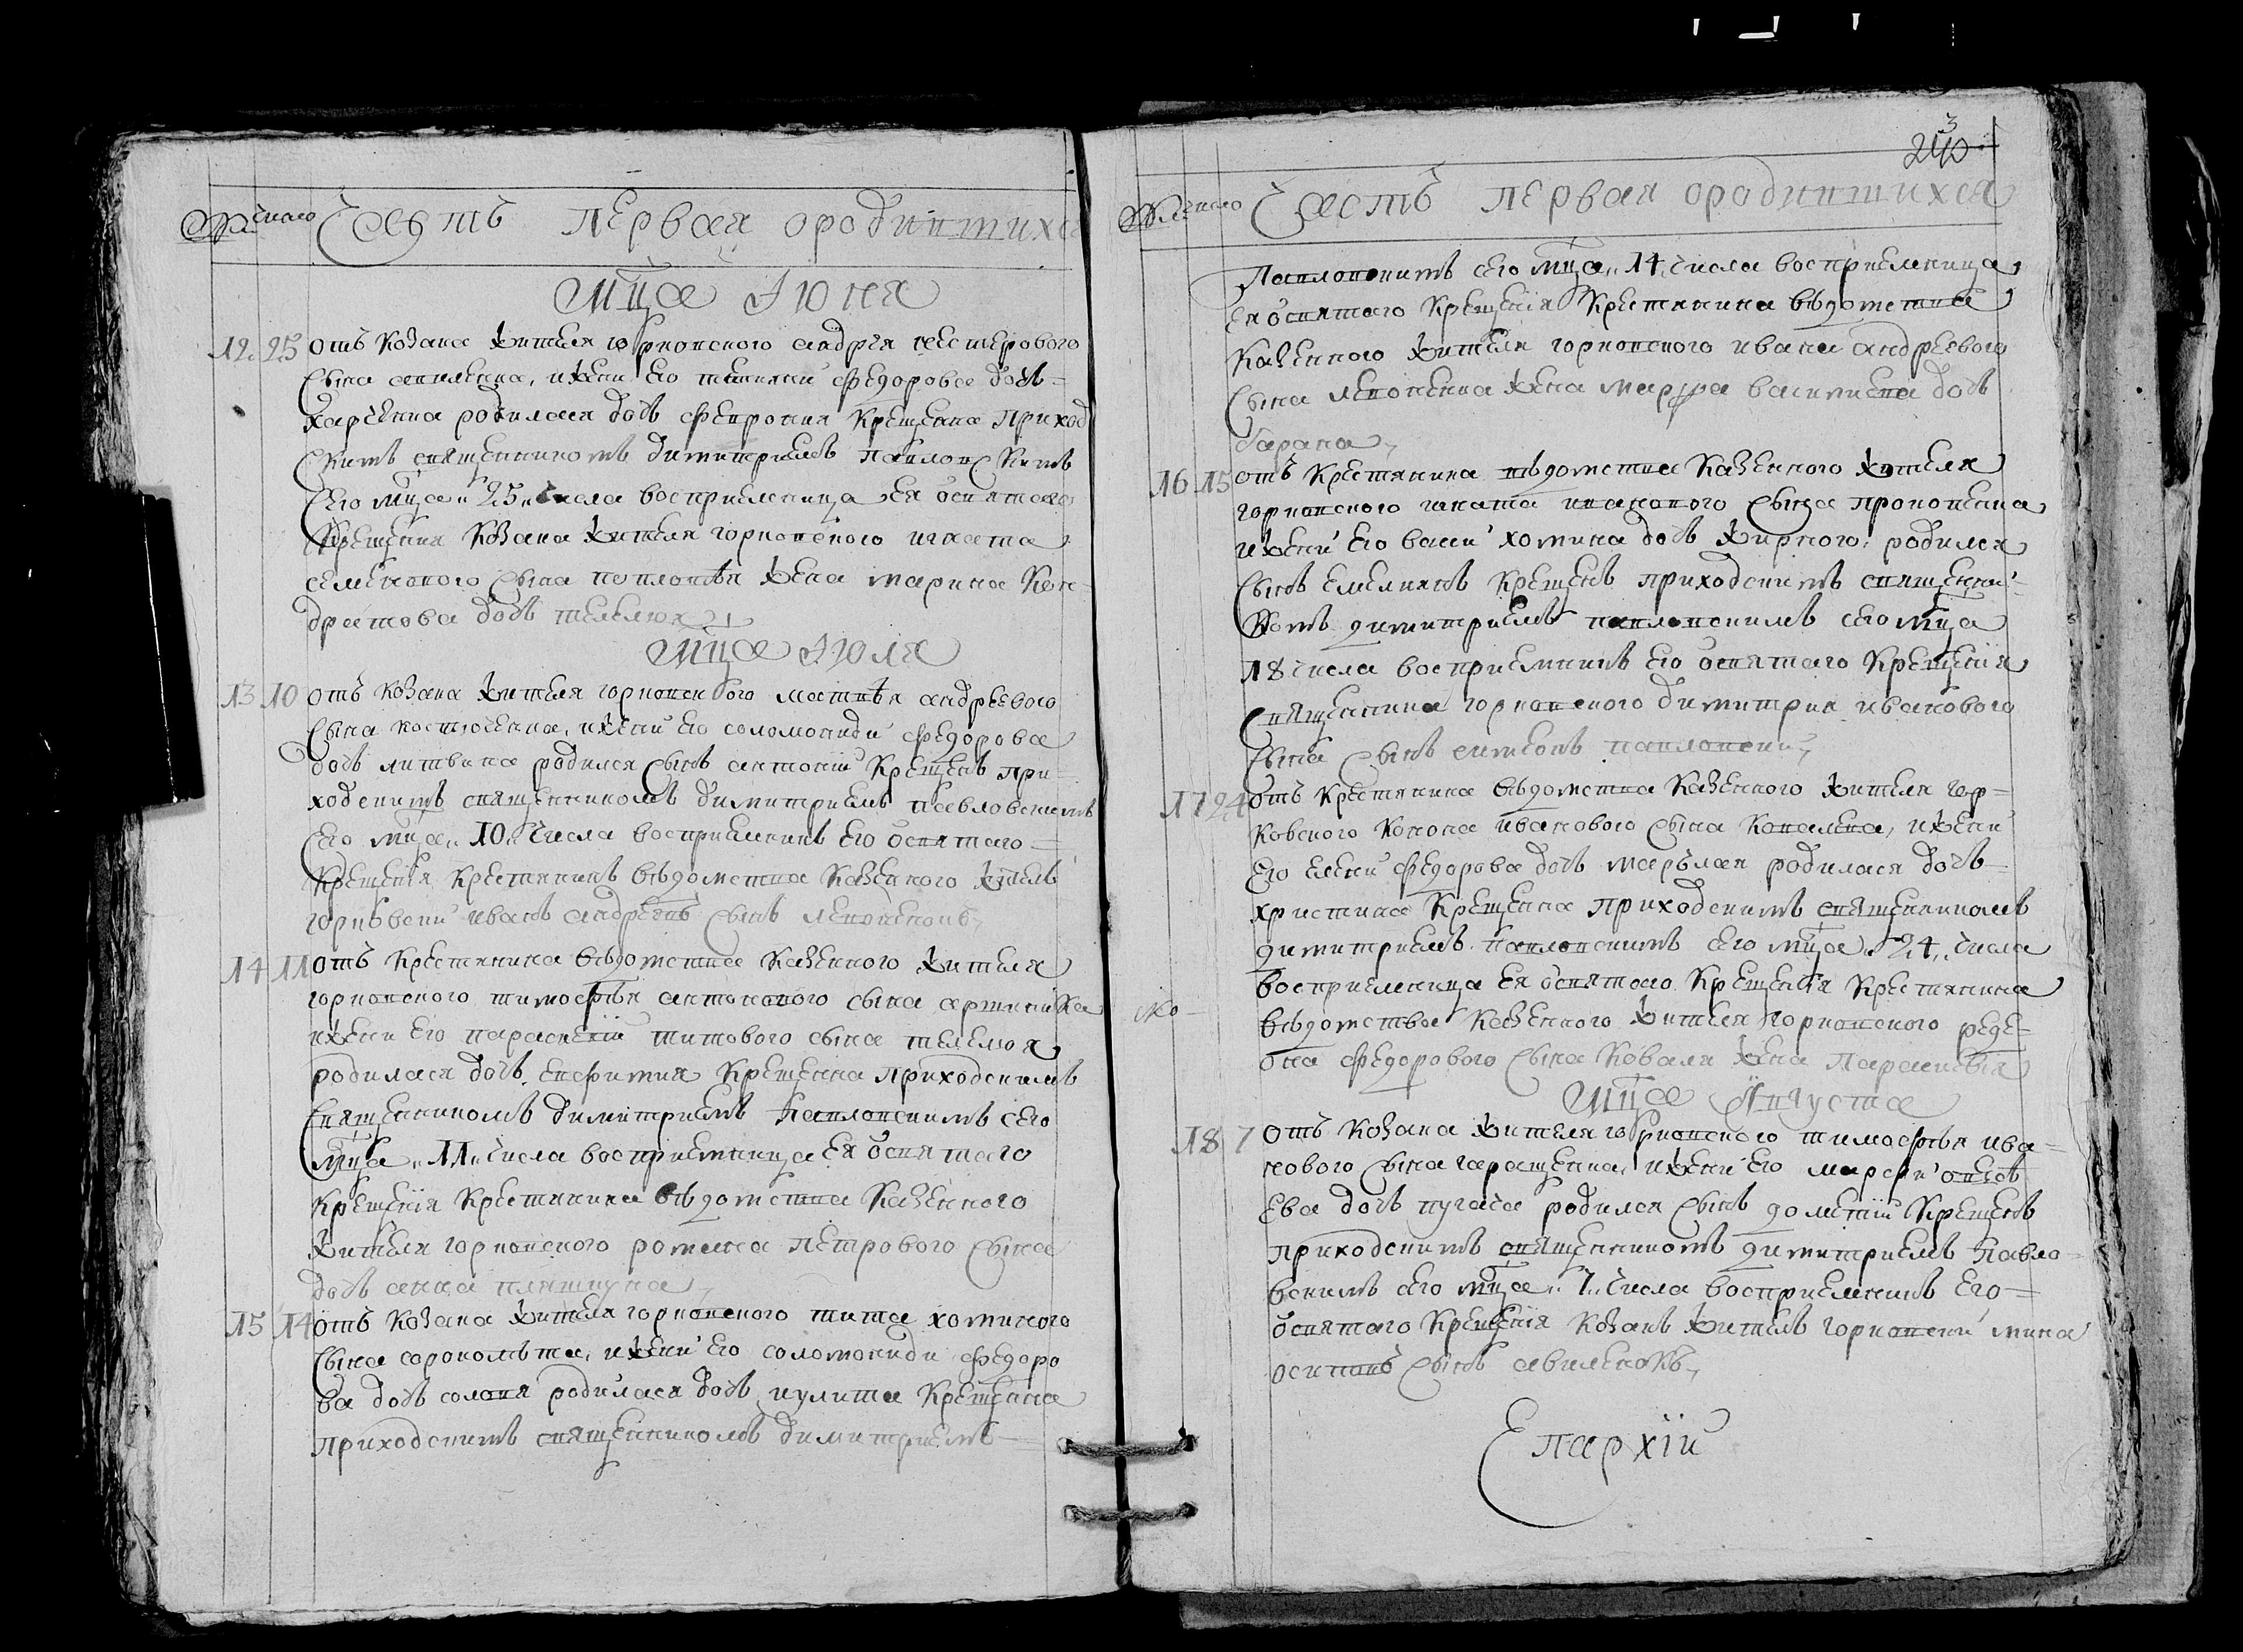 № число Часть первая ородившихся
Мца Июня
12 25 отъ козака жителя горковского андрея нестерового
сына авиленка, ижени его татияни федорова дочь
харченка родилася дочь феврония крещенна приход
скимъ священникомъ димитриемъ павловскимъ
сего мца 25 числа восприемница ея ѿ святаго
крещения козака жителя горковского игната
семенового сына жена марина кон-
дратова дочь
Мца Июля
13 10 отъ козака жителя горковского матвѣя андреевого
сына костюченка, ижени его соломониди федорова
дочь литвина родился сынъ антоний крещенъ при-
ходскимъ священникомъ димитриемъ павловскимъ
сего мца 10 числа восприемникъ его ѿ святаго
крещенїя крестянинъ вѣдомства казенного житель
горковский иванъ андреевъ сынъ левоненокъ
14 11 отъ крестянина вѣдомства казенного жителя
горковского тимофѣя антонового сына
ижени его параскевїи титового сына телемоя
родилася дочь евфимия крещенна приходскимъ
священникомъ димитриемъ павловскимъ сего
мца 11 числа восприемница ея ѿ святаго
крещенїя крестянина вѣдомства казенного
жителя горковского романа петрового сына
дочь анна
15 14 отъ козака жителя горковского тита хоминого
сына сороколѣта, ижени его соломониди федоро
ва дочь соловя родилася дочь иулита крещенна
приходскимъ священникомъ димитриемъ
3
240
№ число Часть первая ородившихся
Павловскимъ сего мца 14 числа восприемница
ея ѿ святаго крещенїя крестянина вѣдомства
казенного жителя горковского ивана андреевого
сына левоненка жена марфа василиева дочь
барана
16 15 отъ крестянина вѣдомства казенного жителя
горковского игната иванового сына прокопенка
ижени его васси хомина дочь жирного, родился
сынъ емелиянъ крещенъ приходскимъ священни-
комъ димитриемъ павловскимъ сего мца
18 числа восприемникъ его ѿ святаго крещенїя
священника горковского димитрия иванового
сына сынъ симеонъ павловский
17 24 отъ крестянина вѣдомства казенного жителя гор-
ковского конона иванового сына коваленка, ижени
его елени федорова дочь родилася дочь
христина крещенна приходскимъ священникомъ
димитриемъ павловскимъ сего мца 24 числа
восприемница ея ѿ святаго крещенїя крестянина
вѣдомства казенного жителя горковского роди-
она федорового сына коваля жена параскевїя
Мца Августа
18 7 отъ козака жителя горковского тимофѣя ива-
нового сына геращенка, ижени его марфи
ева дочь пугача родился сынъ дометїй крещенъ
приходскимъ священникомъ димитриемъ павло-
вскимъ сего мца 7 числа восприемникъ его
ѿ святаго крещенїя козакъ житель горковский мина
осиповъ сынъ авиленокъ
Епархїи